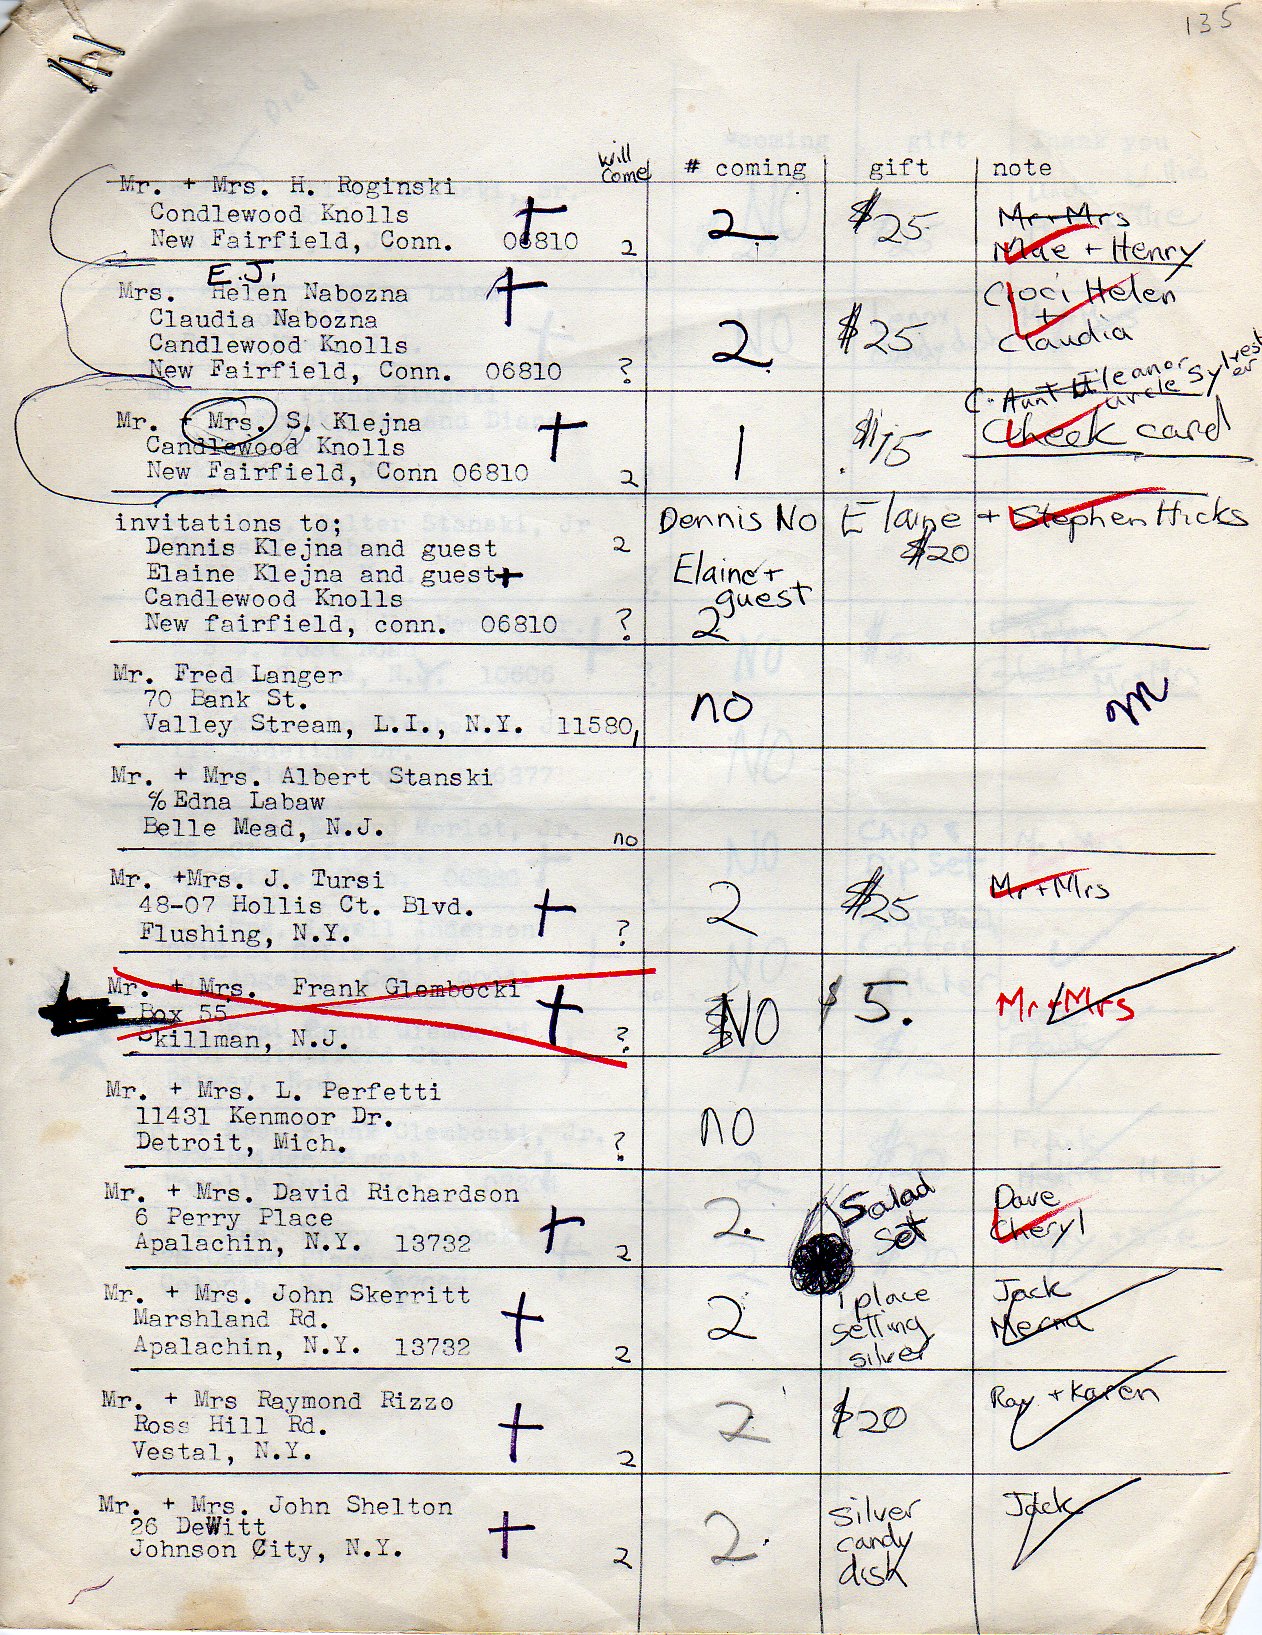 135
will come # coming gift note
Mr. + Mrs. H. Roginski
Condlewood Knolls
New Fairfield, Conn. 06810 2 2 $25 Mr + Mrs
Mae + Henry
E.J.
Mrs. Helen Nabozna
Claudia Nabozna
Candlewood Knolls
New Fairfield, Conn. 06810 ? 2 $25 Cioci Helen
+
Claudia
C. Aunt Eleanor
circle Sylvester
Mr. + Mrs. S. Klejna
Candlewood Knolls
New Fairfield, Conn 06810 2 1 $15 Check card
invitations to;
Dennis Klejna and guest 2 Dennis No Elaine + Stephen Hicks
$20
Elaine Klejna and guest Elaine +
Candlewood Knolls guest
New fairfield, conn. 06810 ? 2
Mr. Fred Langer
70 Bank St.
Valley Stream, L.I., N.Y. 11580 no
Mr. + Mrs. Albert Stanski
% Edna Labaw
Belle Mead, N.J. no
Mr. +Mrs. J. Tursi
48-07 Hollis Ct. Blvd.
Flushing, N.Y. ? 2 $25 Mr + Mrs
Mr. + Mrs. Frank Glembocki
Box 55
Skillman, N.J. ? NO $5. Mr + Mrs
Mr. + Mrs. L. Perfetti
11431 Kenmoor Dr.
Detroit, Mich. ? no
Mr. + Mrs. David Richardson
6 Perry Place
Apalachin, N.Y. 13732 2 2. Salad
set Dave
Cheryl
Mr. + Mrs. John Skerritt
Marshland Rd.
Apalachin, N.Y. 13732 2 2 1 place
setting
silver Jack
Merna
Mr. + Mrs Raymond Rizzo
Ross Hill Rd.
Vestal, N.Y. 2 2 $20 Ray + Karen
Mr. + Mrs. John Shelton
26 DeWitt
Johnson City, N.Y. 2 2 silver
candy
disk Jack